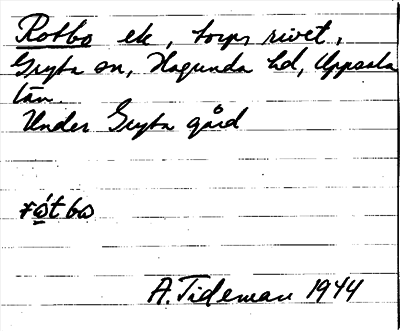 Rotbo ek, torp, rivet,
Gryta sn, Hagunda hd, Uppsala
län.
Under Gryta gård
rótbo
A. Tideman 1944